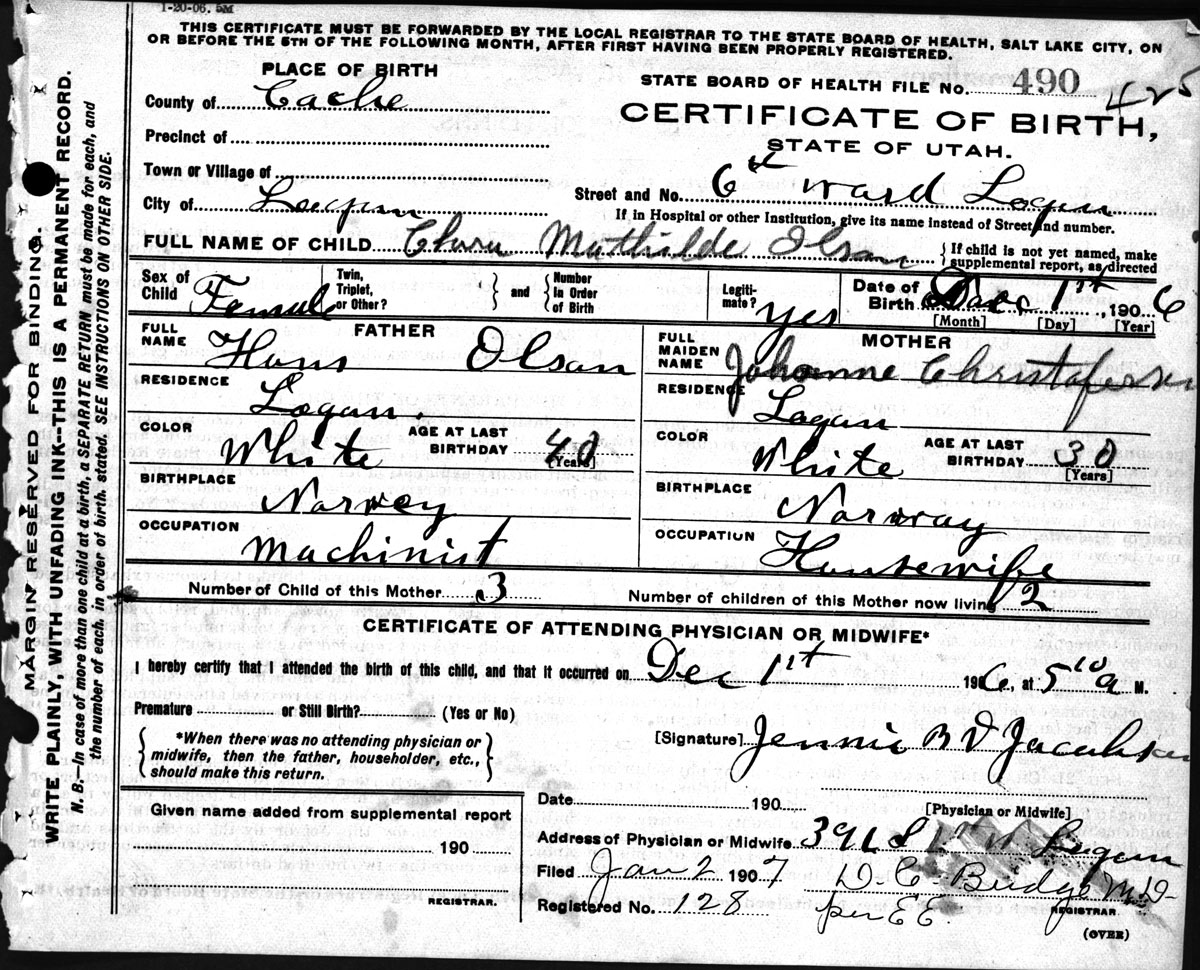 1-20-06. 5M
THIS CERTIFICATE MUST BE FORWARDED BY THE LOCAL REGISTRAR TO THE STATE BOARD OF HEALTH, SALT LAKE CITY, ON
OR BEFORE THE 5TH OF THE FOLLOWING MONTH, AFTER FIRST HAVING BEEN PROPERLY REGISTERED.
MARGIN RESERVED FOR BINDING.
WRITE PLAINLY, WITH UNFADING INK—THIS IS A PERMANENT RECORD.
N. B.—In case of more than one child at a birth, a SEPARATE RETURN must be made for each, and
the number of each, in order of birth, stated. SEE INSTRUCTIONS ON OTHER SIDE.
PLACE OF BIRTH
County of Cache
Precinct of
Town or Village of
City of Logan
STATE BOARD OF HEALTH FILE NO. 490
425
CERTIFICATE OF BIRTH,
STATE OF UTAH.
Street and No. 6th ward Logan
If in Hospital or other Institution, give its name instead of Street and number.
FULL NAME OF CHILD Clara Mathilde Olsan
{ If child is not yet named, make
supplemental report, as directed
Sex of Child Female
Twin, Triplet, or Other? } and { Number in Order of Birth
Legitimate? yes
Date of Birth Dec 1st, 1906
[Month] [Day] [Year]
FATHER
FULL NAME Hans Olsan
RESIDENCE Logan.
COLOR White AGE AT LAST BIRTHDAY 40
[Years]
BIRTHPLACE Norwey
OCCUPATION Machinist
MOTHER
FULL MAIDEN NAME Johanne Christofersen
RESIDENCE Logan
COLOR White AGE AT LAST BIRTHDAY 30
[Years]
BIRTHPLACE Norway
OCCUPATION Housewife
Number of Child of this Mother 3 Number of children of this Mother now living 2
CERTIFICATE OF ATTENDING PHYSICIAN OR MIDWIFE*
I hereby certify that I attended the birth of this child, and that it occurred on Dec 1st 1906., at 5 10 a M.
Premature or Still Birth? (Yes or No)
{ *When there was no attending physician or
midwife, then the father, householder, etc.,
should make this return. }
[Signature] Jennie B D Jacobsen
Given name added from supplemental report
190
REGISTRAR.
Date 190
[Physician or Midwife]
Address of Physician or Midwife Logan
Filed Jan 2 1907 D. C. Budge M.D.
Registered No. 128 per E E.
REGISTRAR.
(OVER)